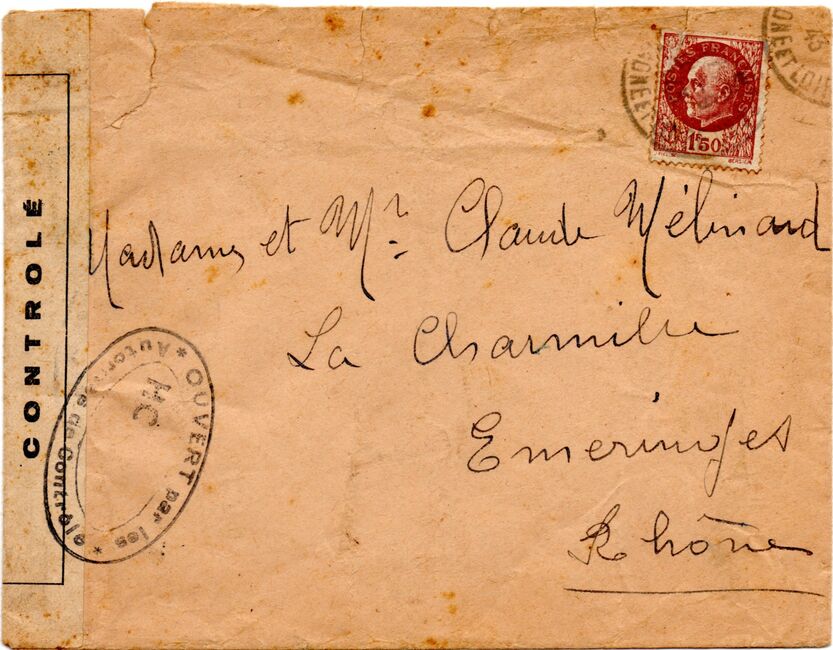 CONTROLÉ
POSTES FRANÇAISES
1F50
Madame et Mr Claude Mélinard
La Charmille
Emeringes
Rhône
* OUVERT par les *
Autorités de Contrôle